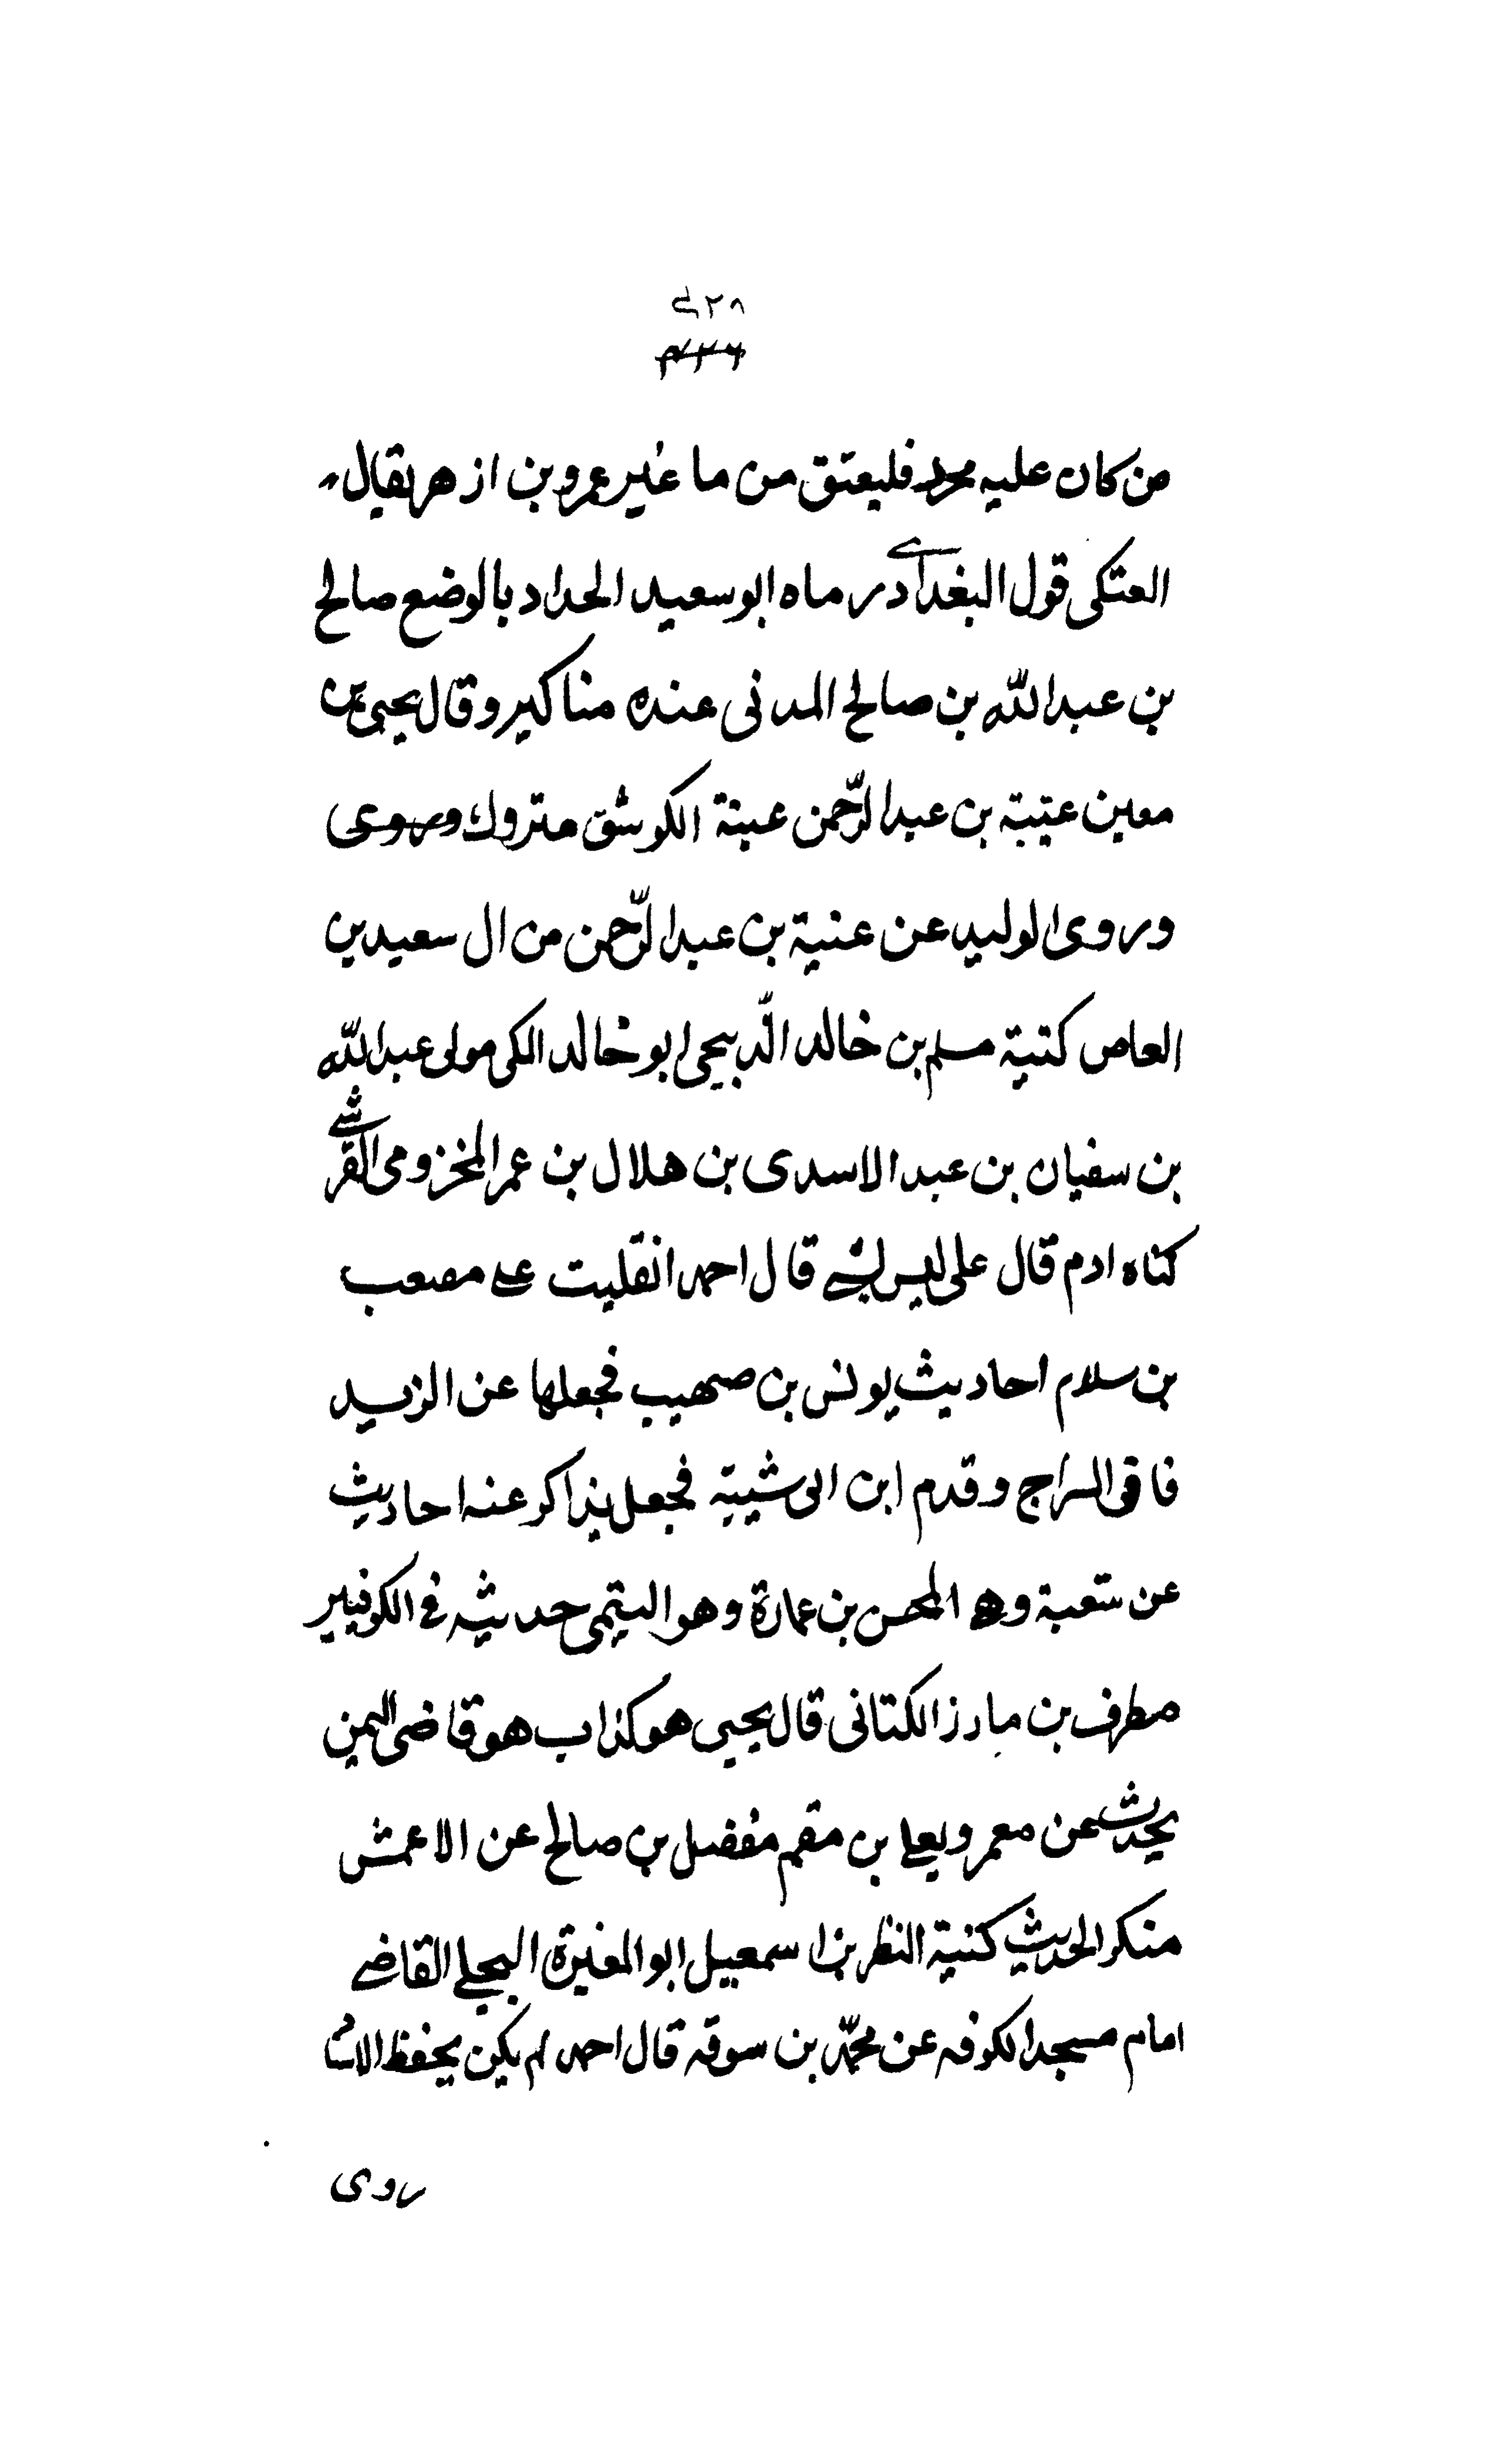 ٨٢٦
من كان عليه محرر فليعتق من ما غير عمرو بن ازهر يقال
العتكى قول البغدادے رماه ابو سعيد الحداد بالوضع صالح
بن عبد اللّه بن صالح المدنى عنده مناكير وقال يحيى بن
معين عتبة بن عبد الرّحمن عبنة الكو متروك
وروى الوليد عن عنبة بن عبد الرّحمن من ال سعيد بن
العاص كنية مسلم بن خالد الّد يحيى ابو خالد المكى مولى عبد اللّه
بن سفيان بن عبد الاسدى بن هلال بن عمر المخزومى القرشے
كناه ادم قال على ليس بشے قال احمد انقلبت علے مصعب
بن سلام احاديث يونس بن صهيب فجعلها عن الزبيد
فاقى السراج وقدم ابن ابى شيبة فجعل يذاكر عنه احاديث
عن شعبة وهو المحسن بن عمارة وهو التيمى حديثه فے الكوفيير
مطرف بن مارز الكتانى قال يحيى هو كذاب هو قاضى اليمن
يحدث عن معمر ويعلے بن مقم مفضل بن صالح عن الاعمش
منكر الحديث كنية النظر بن اسمعيل ابو المغيرة البجلے القاضے
امام مسجد الكوفه عن محمّد بن سوقه قال احمد لم يكن يحفظ الاسنا
روى